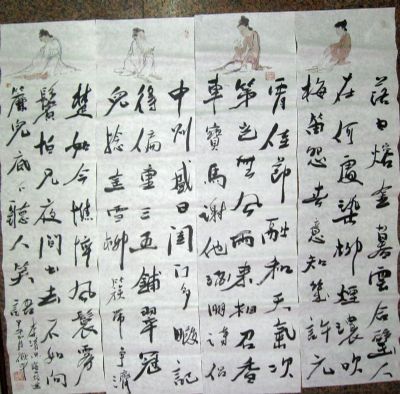 落日熔金暮雲合璧人
在何處染柳煙濃吹
梅笛怨春意知幾許元
宵佳節融和天氣次
第豈無風雨來相召香
車寶馬謝他酒朋詩侶
中州盛日閨門多暇記
得偏重三五鋪翠冠
兒捻金雪柳簇帶爭濟
楚如今憔悴風鬟霧
鬢怕見夜間出去不如向
簾兒底下聽人笑語
李清照